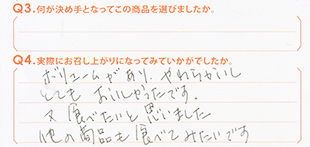 Q3.何が決め手となってこの商品を選びましたか。
Q4.実際にお召し上がりになってみていかがでしたか。
ボリュームがあり、やわらかいし
とても おいしかったです。
又 食べたいと思いました
他の商品も食べてみたいです